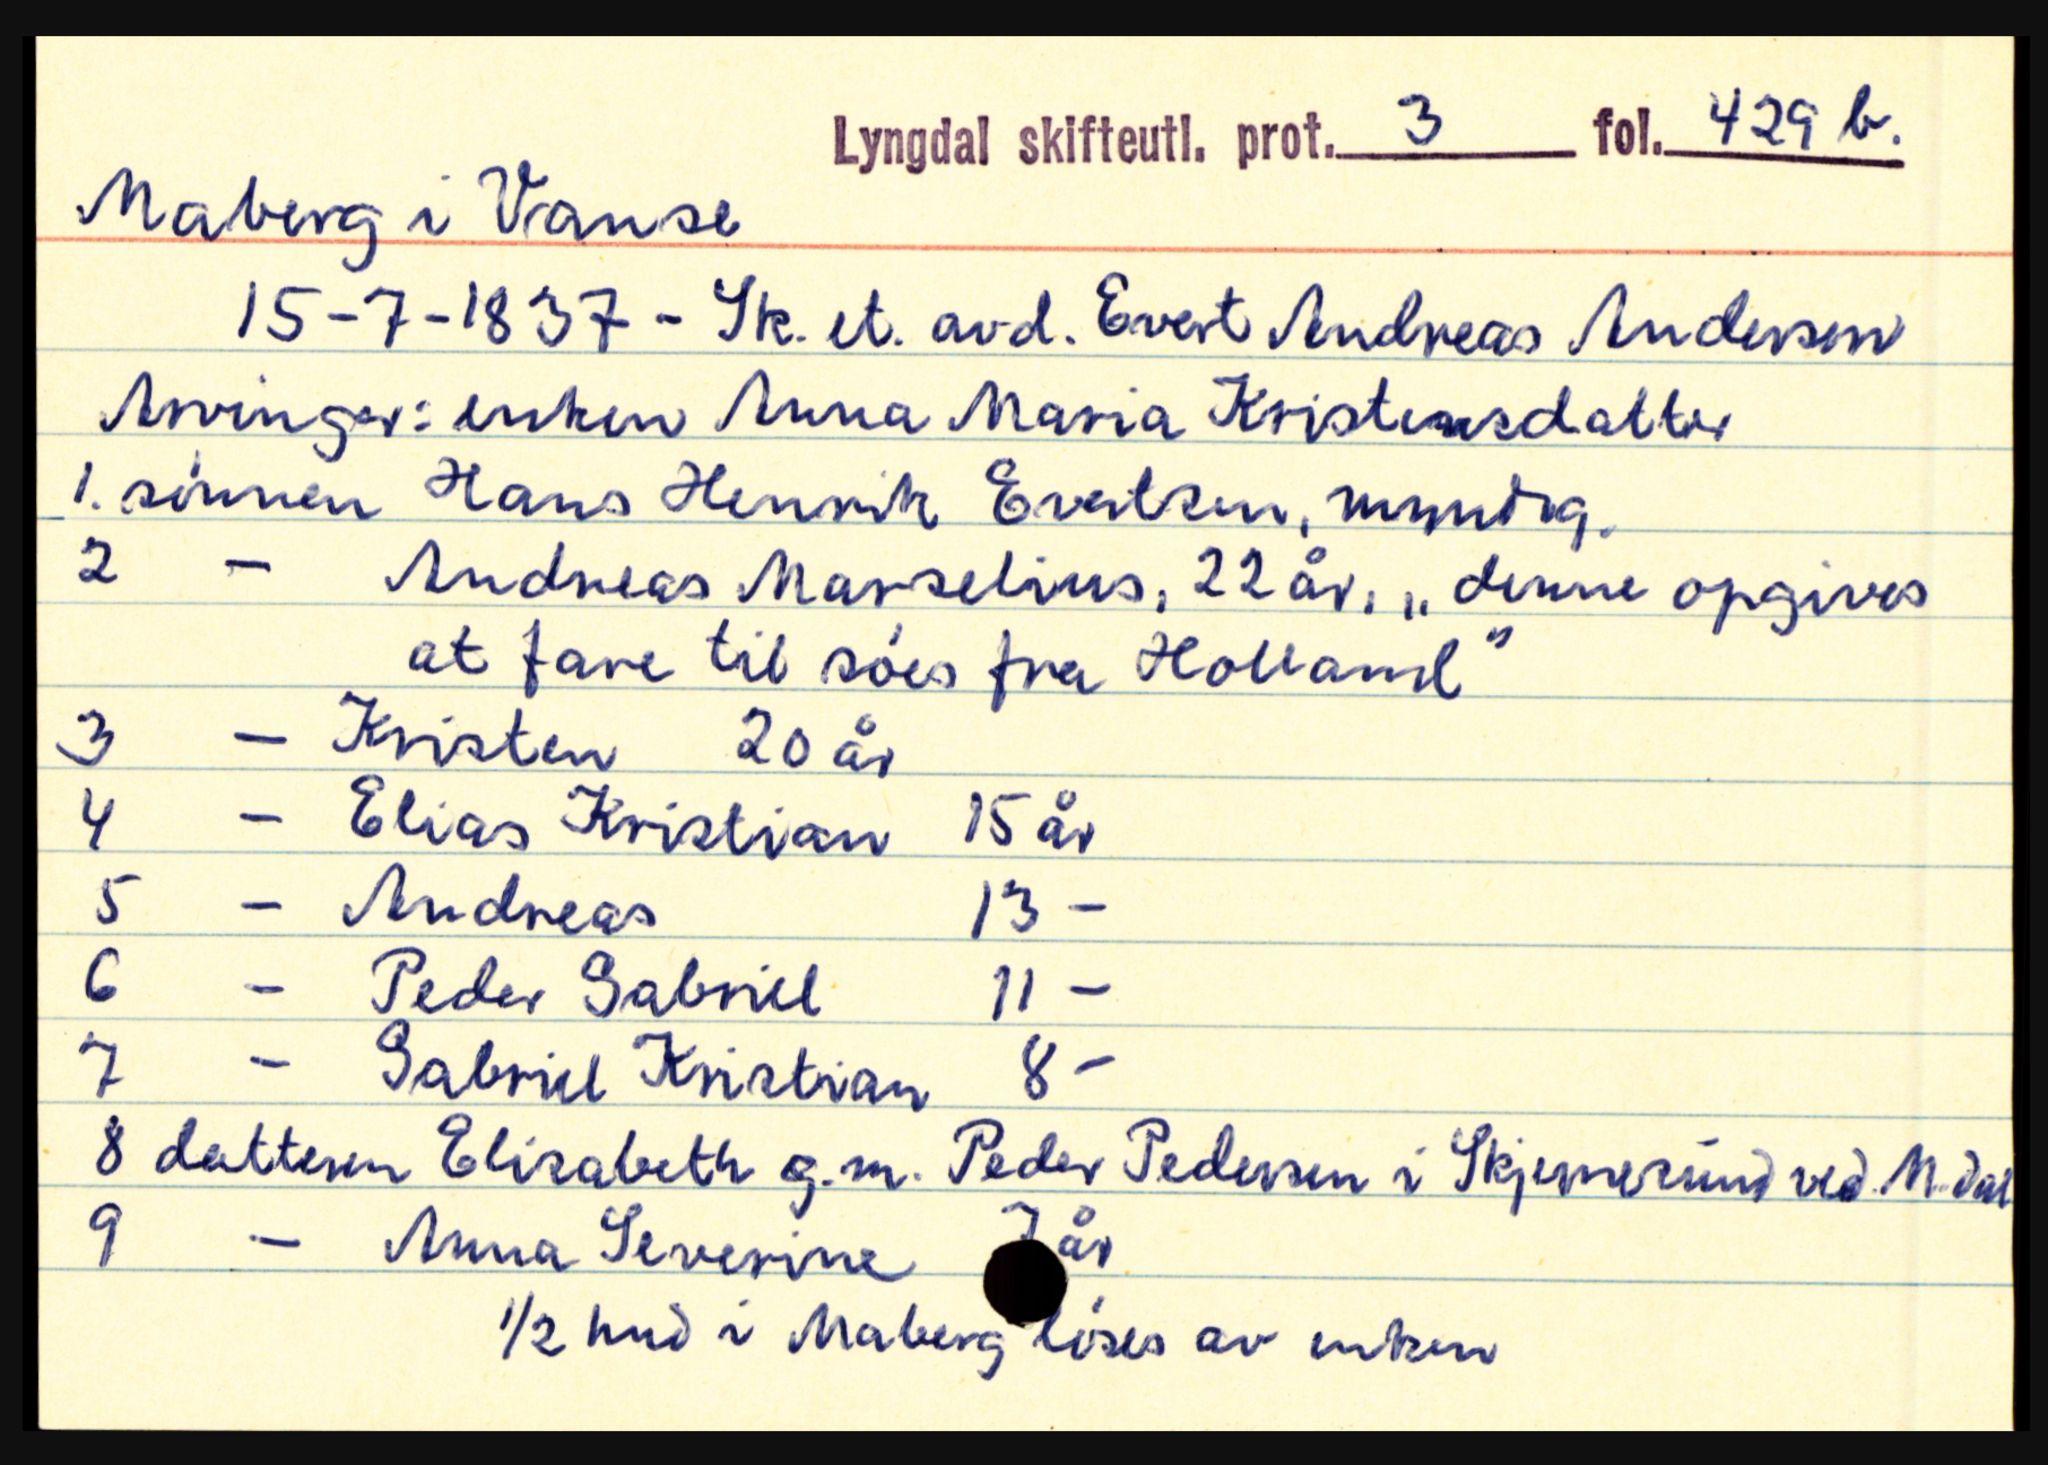 Lyngdal skifteutl. prot. 3 fol. 429 b.
Maberg i Vanse
15-7-1837 - Sk. et. avd. Evert Andreas Andersen
Arvinger: enken Anna Maria Kristensdatter
1. sønnen Hans Henrik Evertsen, myndig.
2 - Andreas Marselius, 22 år, „denne opgives
at fare til søes fra Holland"
3 - Kristen 20 år
4 - Elias Kristian 15 år
5 - Andreas 13 -
6 - Peder Gabriel 11 -
7 - Gabriel Kristian 8 -
8 datteren Elisabeth g.m. Peder Pedersen i Skjernesund ved M.dal
9 - Anna Severine 7 år
1/2 hud i Maberg løses av enken